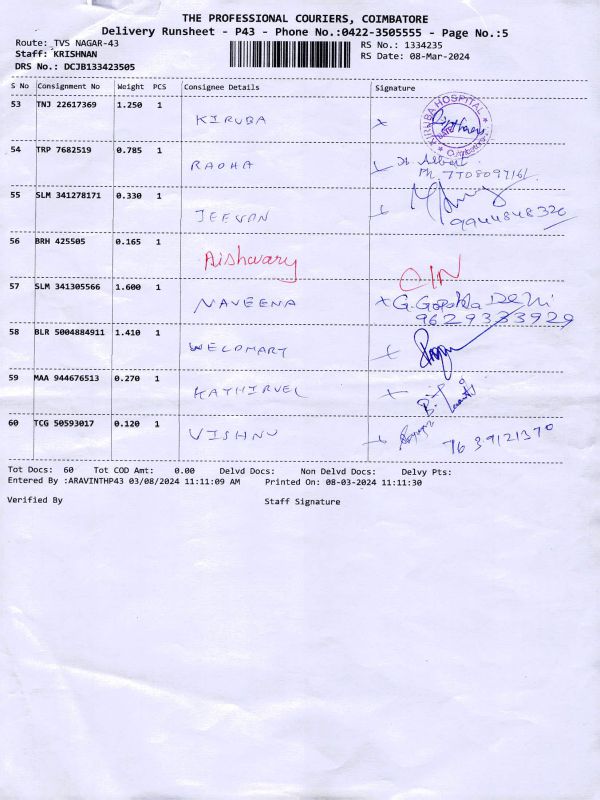 THE PROFESSIONAL COURIERS, COIMBATORE
Delivery Runsheet - P43 - Phone No.:0422-3505555 - Page No.:5
Route: TVS NAGAR-43 RS No.: 1334235
Staff: KRISHNAN RS Date: 08-Mar-2024
DRS No.: DCJB133423505
S No Consignment No Weight PCS Consignee Details Signature
53 TNJ 22617369 1.250 1 KIRUBA x KIRUBA HOSPITAL
54 TRP 7682519 0.785 1 RADHA
Ph.
55 SLM 341278171 0.330 1 JEEVAN
9944848320
56 BRH 425505 0.165 1 Aishwary
57 SLM 341305566 1.600 1 NAVEENA x G. Gopala Devi
9629333929
58 BLR 5004884911 1.410 1 WELDMART x
59 MAA 944676513 0.270 1 KATHIRVEL x B.
60 TCG 50593017 0.120 1 VISHNU 7639121370
Tot Docs: 60 Tot COD Amt: 0.00 Delvd Docs: Non Delvd Docs: Delvy Pts:
Entered By :ARAVINTHP43 03/08/2024 11:11:09 AM Printed On: 08-03-2024 11:11:30
Verified By Staff Signature